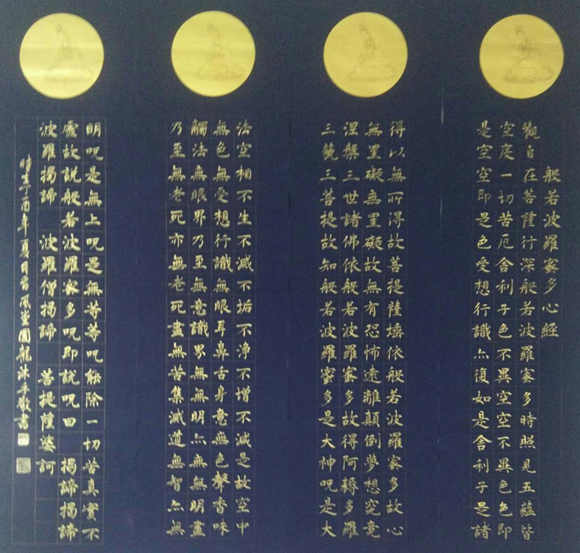 般若波羅蜜多心經
觀自在菩薩行深般若波羅蜜多時照見五蘊皆
空度一切苦厄舍利子色不異空空不異色色即
是空空即是色受想行識亦復如是舍利子是諸
得以無所得故菩提薩埵依般若波羅蜜多故心
無罣礙無罣礙故無有恐怖遠離顛倒夢想究竟
涅槃三世諸佛依般若波羅蜜多故得阿耨多羅
三藐三菩提故知般若波羅蜜多是大神呪是大
法空相不生不滅不垢不淨不增不減是故空中
無色無受想行識無眼耳鼻舌身意無色聲香味
觸法無眼界乃至無意識界無無明亦無無明盡
乃至無老死亦無老死盡無苦集滅道無智亦無
明呪是無上呪是無等等呪能除一切苦真實不
虛故說般若波羅蜜多呪即說呪曰 揭諦揭諦
波羅揭諦 波羅僧揭諦 菩提薩婆訶
年夏月 沐手敬書